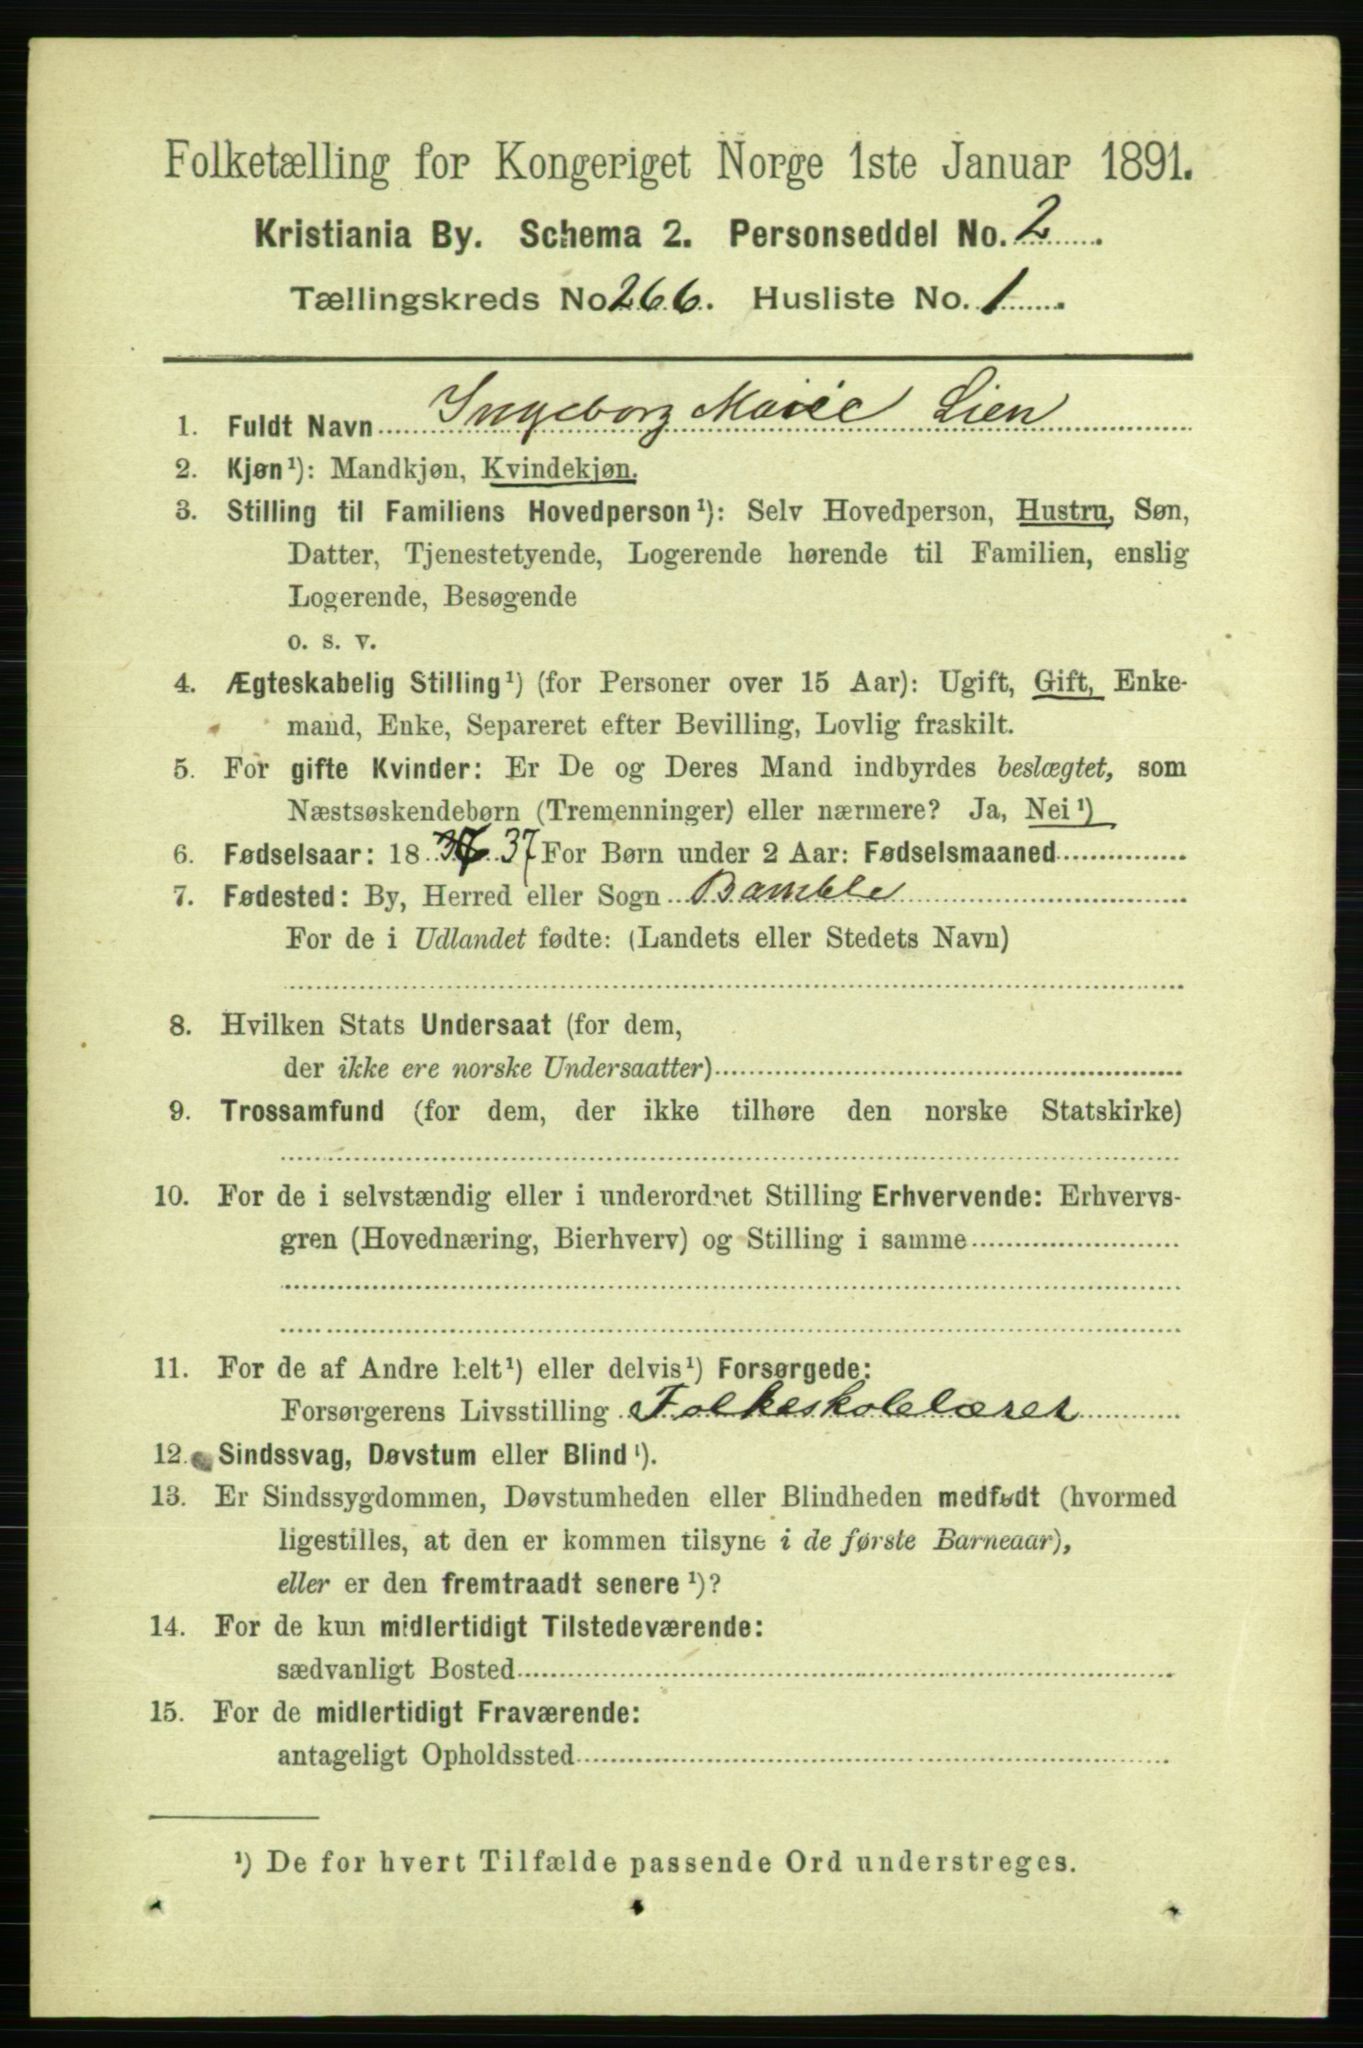 Folketælling for Kongeriget Norge 1ste Januar 1891.
Kristiania By. Schema 2. Personseddel No. 2
Tællingskreds No. 266. Husliste No. 1
1. Fuldt Navn Ingeborg Marie Lien
2. Kjøn¹): Mandkjøn, Kvindekjøn.
3. Stilling til Familiens Hovedperson¹): Selv Hovedperson, Hustru, Søn,
Datter, Tjenestetyende, Logerende hørende til Familien, enslig
Logerende, Besøgende
o. s. v.
4. Ægteskabelig Stilling¹) (for Personer over 15 Aar): Ugift, Gift, Enke-
mand, Enke, Separeret efter Bevilling, Lovlig fraskilt.
5. For gifte Kvinder: Er De og Deres Mand indbyrdes beslægtet, som
Næstsøskendebørn (Tremenninger) eller nærmere? Ja, Nei¹)
6. Fødselsaar: 18 37 For Børn under 2 Aar: Fødselsmaaned
7. Fødested: By, Herred eller Sogn Bamble
For de i Udlandet fødte: (Landets eller Stedets Navn)
8. Hvilken Stats Undersaat (for dem,
der ikke ere norske Undersaatter)
9. Trossamfund (for dem, der ikke tilhøre den norske Statskirke)
10. For de i selvstændig eller i underordnet Stilling Erhvervende: Erhvervs-
gren (Hovednæring, Bierhverv) og Stilling i samme
11. For de af Andre helt¹) eller delvis¹) Forsørgede:
Forsørgerens Livsstilling Folkeskolelærer
12. Sindssvag, Døvstum eller Blind¹).
13. Er Sindssygdommen, Døvstumheden eller Blindheden medfødt (hvormed
ligestilles, at den er kommen tilsyne i de første Barneaar),
eller er den fremtraadt senere¹)?
14. For de kun midlertidigt Tilstedeværende:
sædvanligt Bosted
15. For de midlertidigt Fraværende:
antageligt Opholdssted
¹) De for hvert Tilfælde passende Ord understreges.